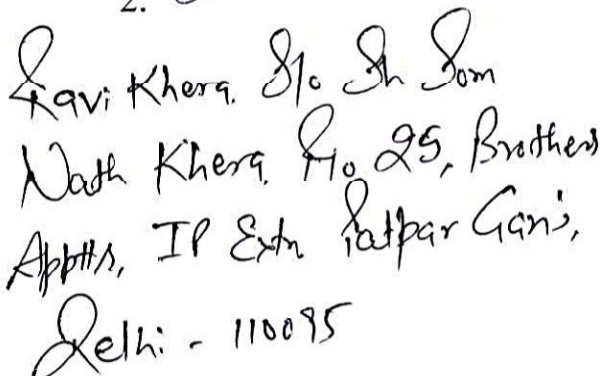 2.
Ravi Khera. S/o Sh Som
Nath Khera. R/o 25, Brothers
Apptts, IP Extn Patpar Ganj,
Delhi - 110095